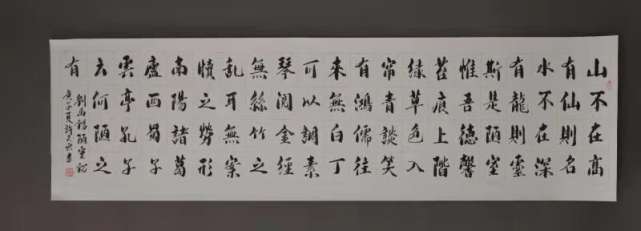 山不在高
有仙則名
水不在深
有龍則靈
斯是陋室
惟吾德馨
苔痕上階
绿草色入
帘青談笑
有鴻儒往
来無白丁
可以調素
琴閱金經
無絲竹之
乱耳無案
牘之勞形
南陽諸葛
廬西蜀子
雲亭孔子
云何陋之
有
劉禹錫陋室銘
庚子夏